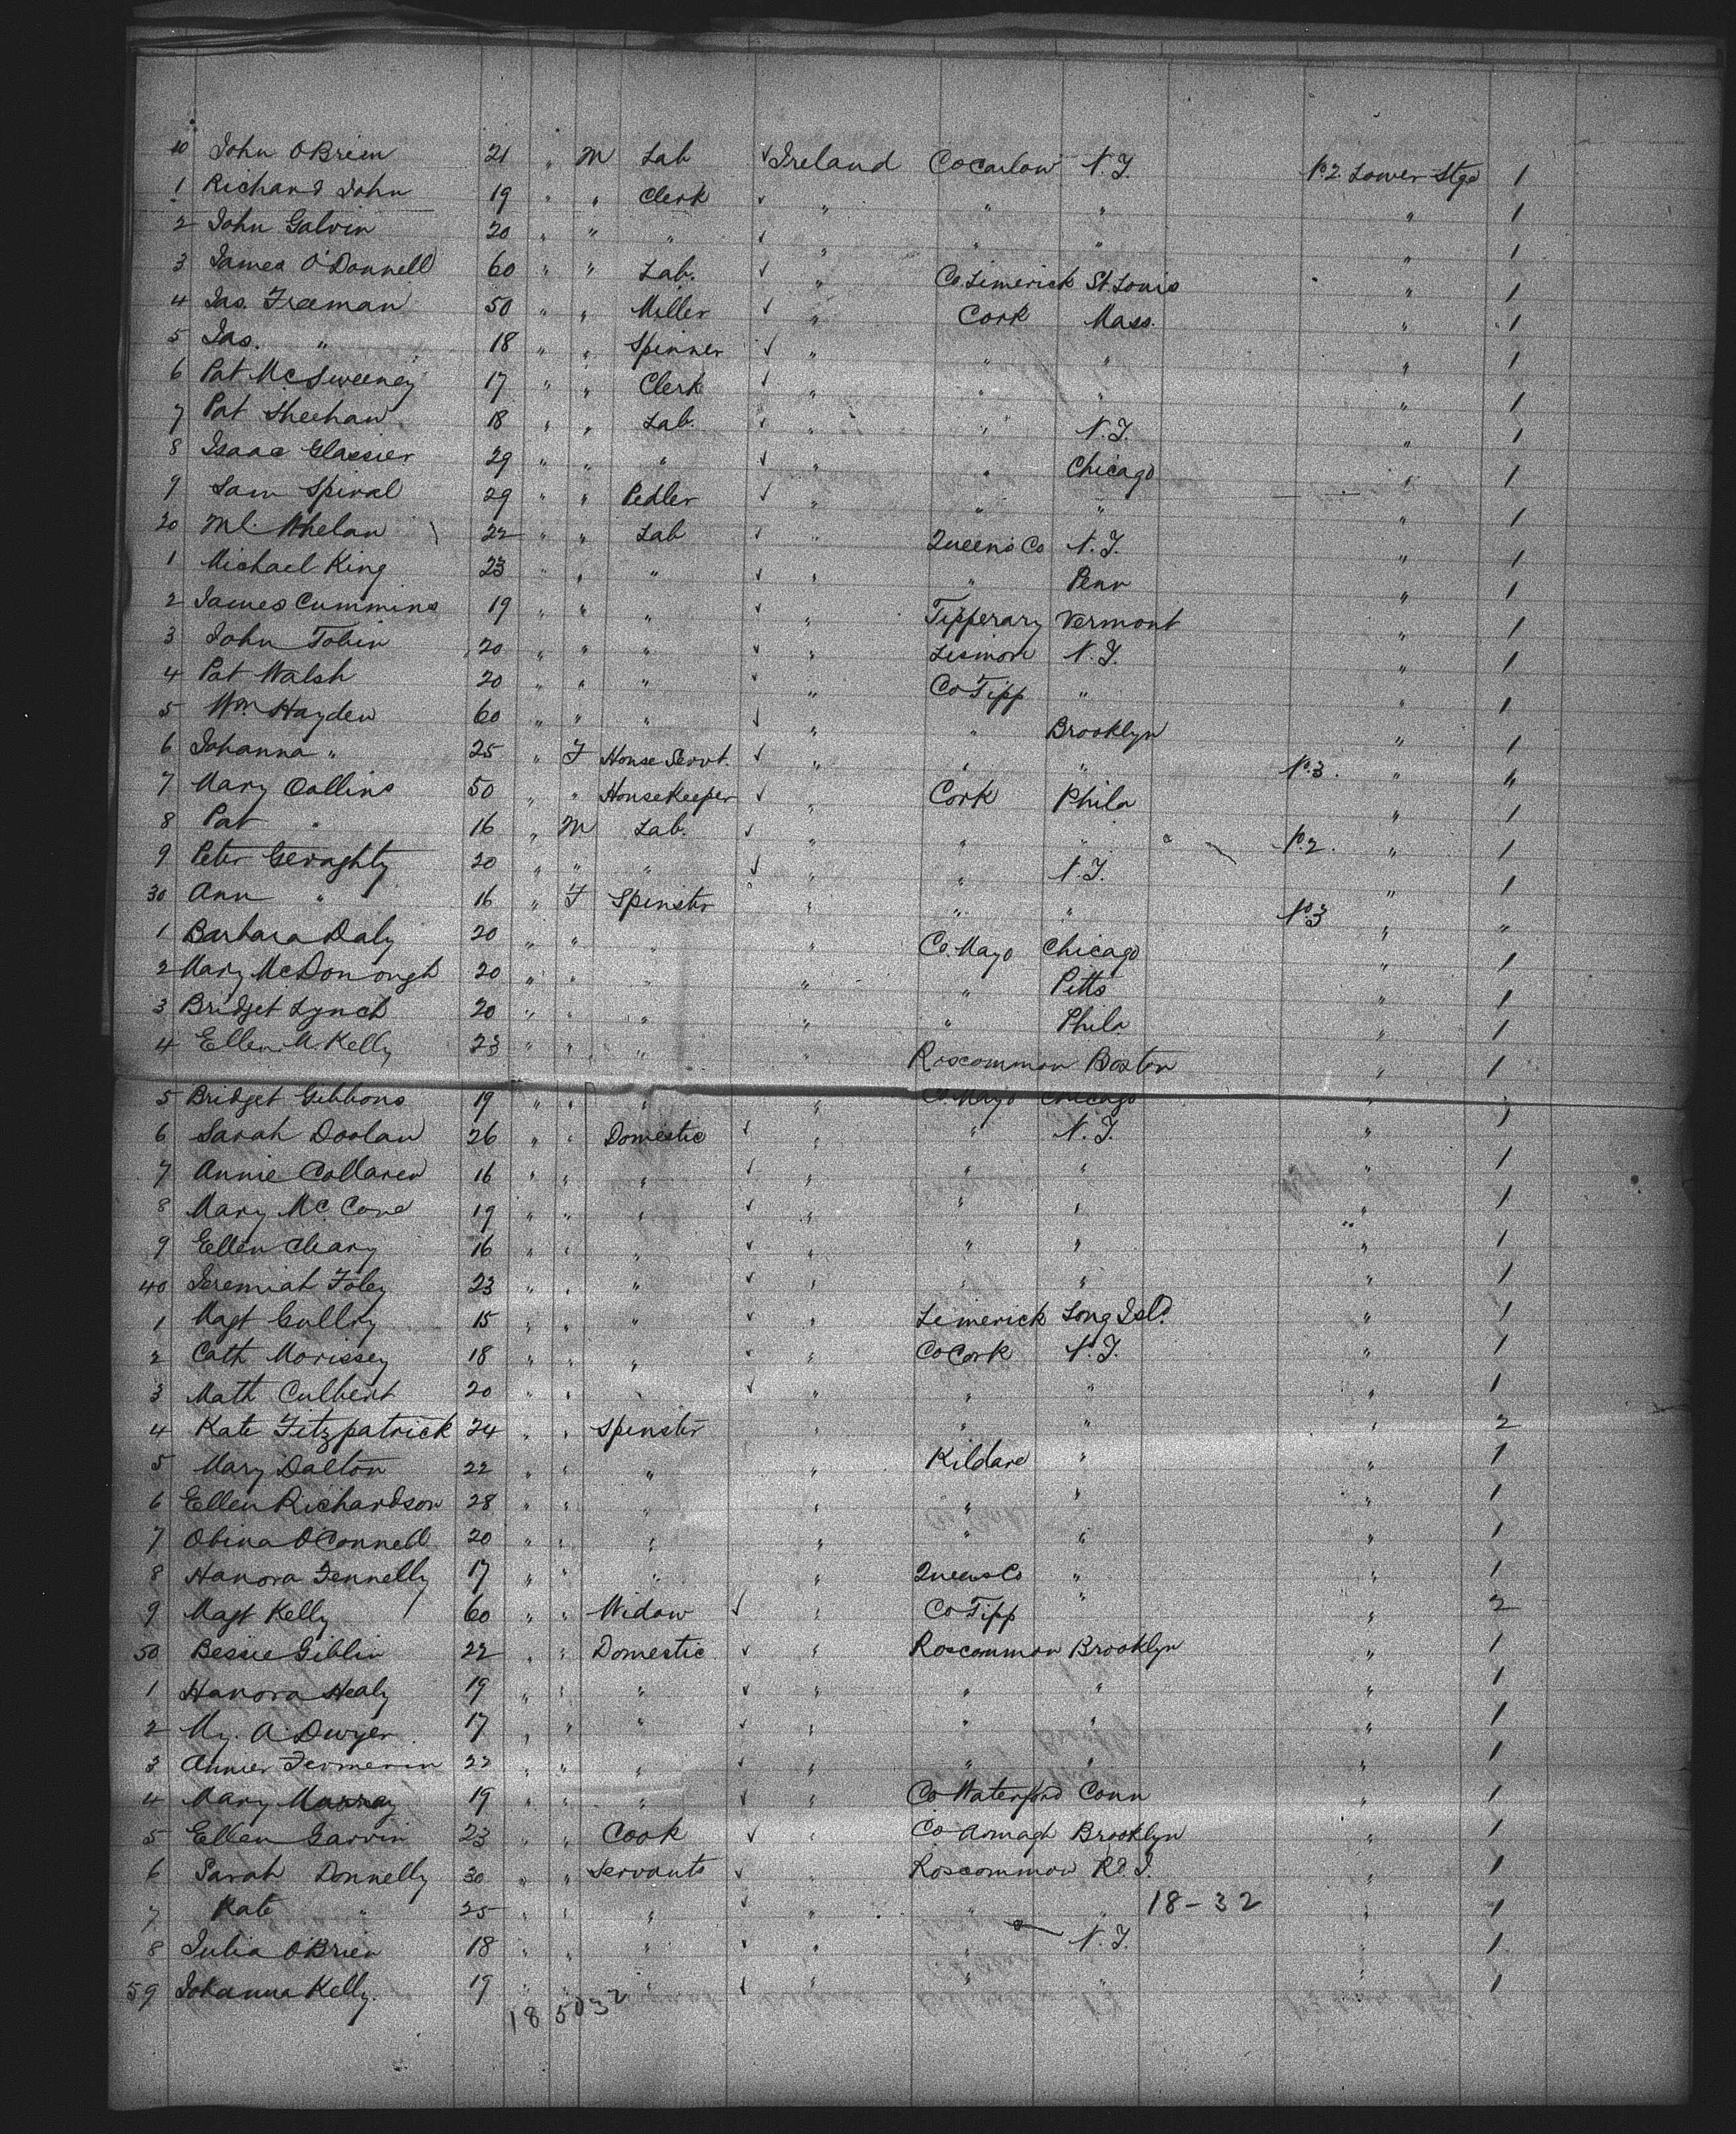 10 John O'Brien 21 " M Lab ✓ Ireland Co Carlow N.Y. No 2. Lower Stge 1
1 Richard John 19 " " Clerk ✓ " " " " 1
2 John Galvin 20 " " " ✓ " " " " 1
3 James O'Donnell 60 " " Lab. ✓ " Co Limerick St. Louis " 1
4 Jas. Freeman 50 " " Miller ✓ " Cork Mass. " 1
5 Jas. " 18 " " Spinner ✓ " " " " 1
6 Pat McSweeney 17 " " Clerk ✓ " " " " 1
7 Pat Sheehan 18 " " Lab. ✓ " " N.Y. " 1
8 Isaac Glassier 29 " " " ✓ " " Chicago " 1
9 Sam Spiral 29 " " Pedler ✓ " " " " 1
20 Ml. Whelan 22 " " Lab ✓ " Queens Co N.Y. " 1
1 Michael King 23 " " " ✓ " " Penn " 1
2 James Cummins 19 " " " ✓ " Tipperary Vermont " 1
3 John Tobin 20 " " " ✓ " Lismore N.Y. " 1
4 Pat Walsh 20 " " " ✓ " Co Tipp " " 1
5 Wm Hayden 60 " " " ✓ " " Brooklyn " 1
6 Johanna " 25 " F House Servt. ✓ " " " No 3. " "
7 Mary Collins 50 " " Housekeeper ✓ " Cork Phila " 1
8 Pat " 16 " M Lab. ✓ " " " No 2. " 1
9 Peter Geraghty 20 " " " ✓ " " N.Y. " 1
30 Ann " 16 " F Spinster " " " No 3 " "
1 Barbara Daly 20 " " " " Co. Mayo Chicago " 1
2 Mary McDonough 20 " " " " " Pitts " 1
3 Bridget Lynch 20 " " " " " Phila " 1
4 Ellen M. Kelly 23 " " " " Roscommon Boston " 1
5 Bridget Gibbons 19 " " " " Co. Mayo Chicago " 1
6 Sarah Doolan 26 " " Domestic ✓ " " N.Y. " 1
7 Annie Collaren 16 " " " ✓ " " " " 1
8 Mary Mc Cone 19 " " " ✓ " " " " 1
9 Ellen Cleary 16 " " " ✓ " " " " 1
40 Jeremiah Foley 23 " " " ✓ " " " " 1
1 Magt 15 " " " ✓ " Limerick Long Isld. " 1
2 Cath Morissey 18 " " " ✓ " Co Cork N.Y. " 1
3 Math Culbert 20 " " " ✓ " " " " 1
4 Kate Fitzpatrick 24 " " Spinster " " " " 2
5 Mary Dalton 22 " " " " Kildare " " 1
6 Ellen Richardson 28 " " " " " " " 1
7 Obina O'Connell 20 " " " " " " " 1
8 Hanora Fennelly 17 " " " " Queens Co " " 1
9 Magt Kelly 60 " " Widow ✓ " Co Tipp " " 2
50 Bessie Giblin 22 " " Domestic ✓ " Roscommon Brooklyn " 1
1 Hanora Healy 19 " " " ✓ " " " " 1
2 My. A. Dwyer 17 " " " ✓ " " " " 1
3 Annie 22 " " " ✓ " " " " 1
4 Mary Murray 19 " " " ✓ " Co Waterford Conn " 1
5 Ellen Garvin 23 " " Cook ✓ " Co Armagh Brooklyn " 1
6 Sarah Donnelly 30 " " Servants ✓ " Roscommon Rd. I. " 1
7 Kate " 25 " " " ✓ " " " 18-32 " 1
8 Julia O'Brien 18 " " " ✓ " " N.Y. " 1
59 Johanna Kelly. 19 " " " ✓ " " " " 1
18 5032